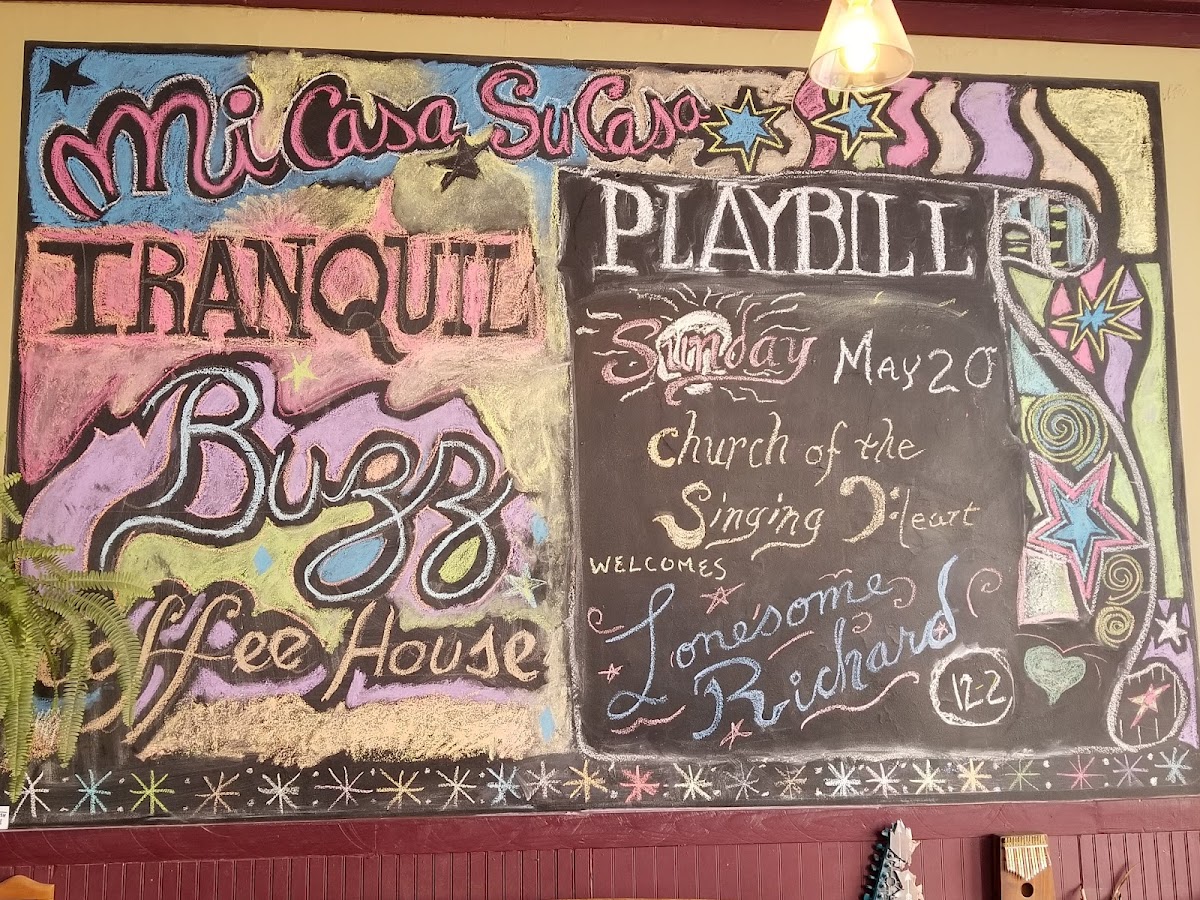 Mi Casa Su Casa
TRANQUIL
Buzz
Coffee House
PLAYBILL
Sunday May 20
Church of the
Singing Heart
WELCOMES
Lonesome
Richard
12-2